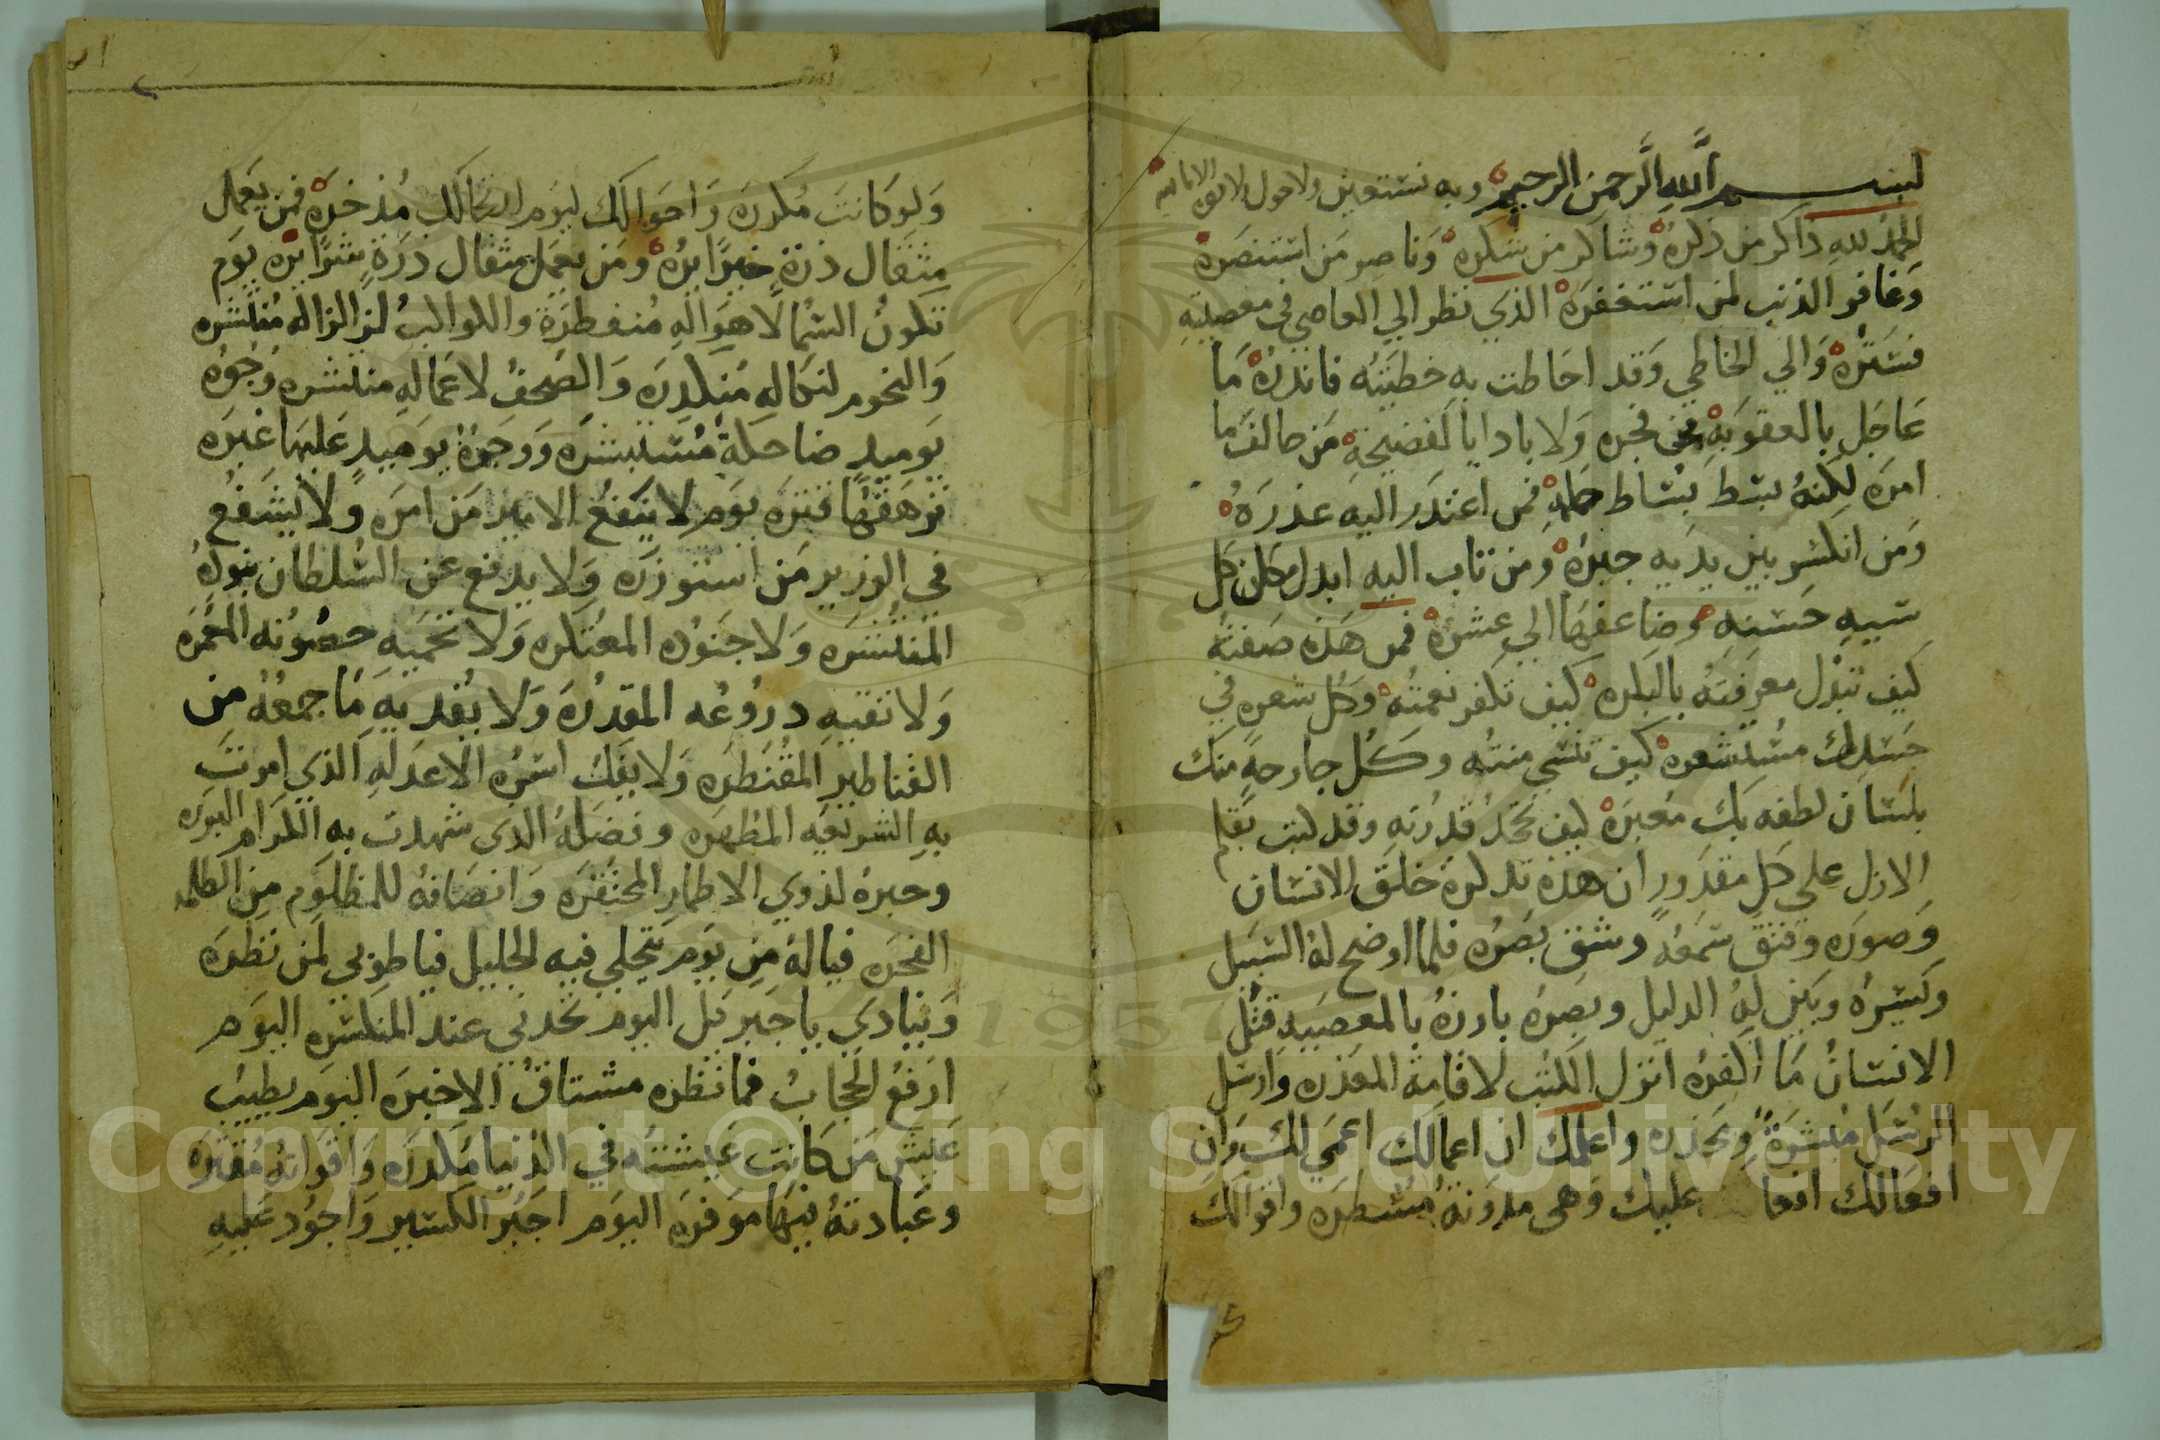 بسم الله الرحمن الرحيم وبه نستعين ولا حول ولا قوة الا بالله
الحمد لله ذاكر من ذكره وشاكر من شكره وناصر من استنصره
وغافر الذنب لمن استغفره الذي نظر الي العاصي في معصيته
فستره والي الخاطي وقد احاطت به خطيته فانذره ما
عاجل بالعقوبة من فجره ولا بادا بالفضيحة من خالف ما
امره لكنه بسط بساط حلمه فمن اعتذر اليه عذره
ومن انكسر بين يديه جبره ومن تاب اليه ابدل مكان كل
سيه حسنه وضاعفها الي عشره فمن هذه صفته
كيف تبدل معرفته بالنكره كيف تكفر نعمته وكل شعره في
جسدك مستشعره كيف تنسي منته وكل جارحة منك
بلسان لطفه بك معبره كيف تجحد قدرته وقد كتب بقلم
الازل علي كل مقدور ان هذه تذكرة خلق الانسان
وصوره وفتق سمعه وشق بصره فلما اوضح له السبيل
ويسره وبين له الدليل وبصره بارزه بالمعصيه قتل
الانسان ما اكفره انزل الكتب لاقامة المعذره وارسل
الرسل مبشرة ومحذره واعلمك ان اعمالك اعمي لك وان
افعالك افعا عليك وهي مدونة مسطره واقوالك
ولو كانت مكرره واحوالك ليوم انتحالك مذخره فمن يعمل
مثقال ذرة خيرا يره ومن يعمل مثقال ذرة شرا يره يوم
تكون السما لاهواله منفطرة والكواكب لزلزاله منتشره
والنجوم لنكاله منكدره والصحف لاعماله منتشره وجوه
يوميد ضاحكة مستبشره ووجوه يوميد عليها غبره
ترهقها قتره يوم لا ينفع الامير من امره ولا يشفع
في الوزير من استوزره ولا يدفع عن السلطان بنوده
المنتشره ولا جنوده المعتكره ولا تحميه حصونه المحمره
ولا تقيه دروعه المقدره ولا يفديه ما جمعه من
القناطير المقنطره ولا يفك اسره الا عدله الذي امرت
به الشريعه المطهره وفضله الذي شهدت به الكرام البرره
وجبره لذوي الاطمار المحتقره وانصافه للمظلوم من الظلمه
الفجره فياله من يوم يتجلي فيه الجليل فيا طوبي لمن نظره
وينادي يا جبريل اليوم تجدني عند المنكسره اليوم
ارفع الحجاب فما تظره مشتاق الا خبره اليوم يطيب
عيش من كانت عيشته في الدنيا مكدره واقواته مقتره
وعبادته فيها موفره اليوم اجبر الكسير واجود عليه
Copyright © King Saud University
1957